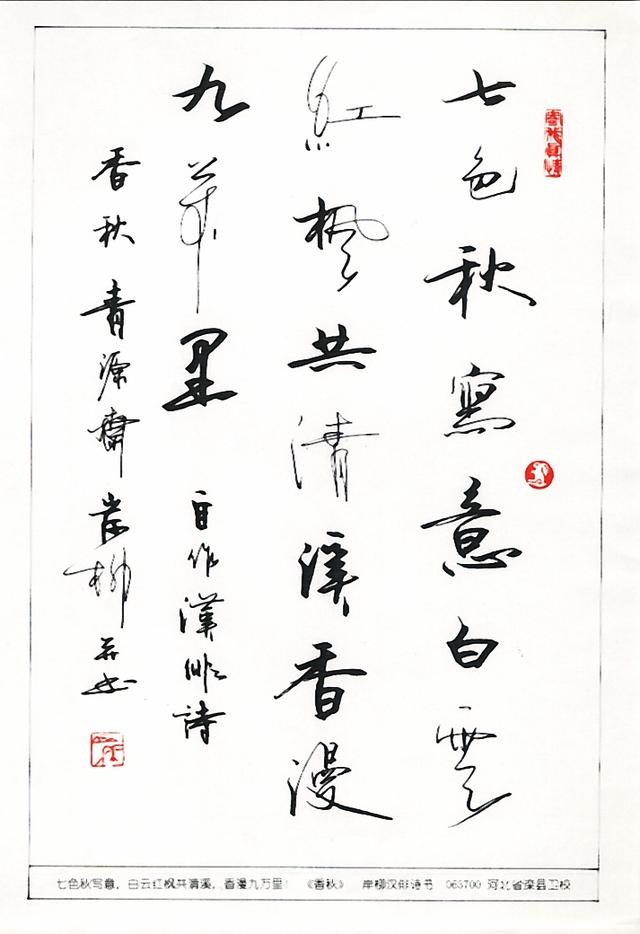 七色秋寫意白雲
紅楓共清溪香漫
九萬里 自作漢俳詩
香秋 青源齋岸柳并書
七色秋写意，白云红枫共清溪，香漫九万里！ 《香秋》 岸柳汉俳诗书 063700 河北省滦县卫校